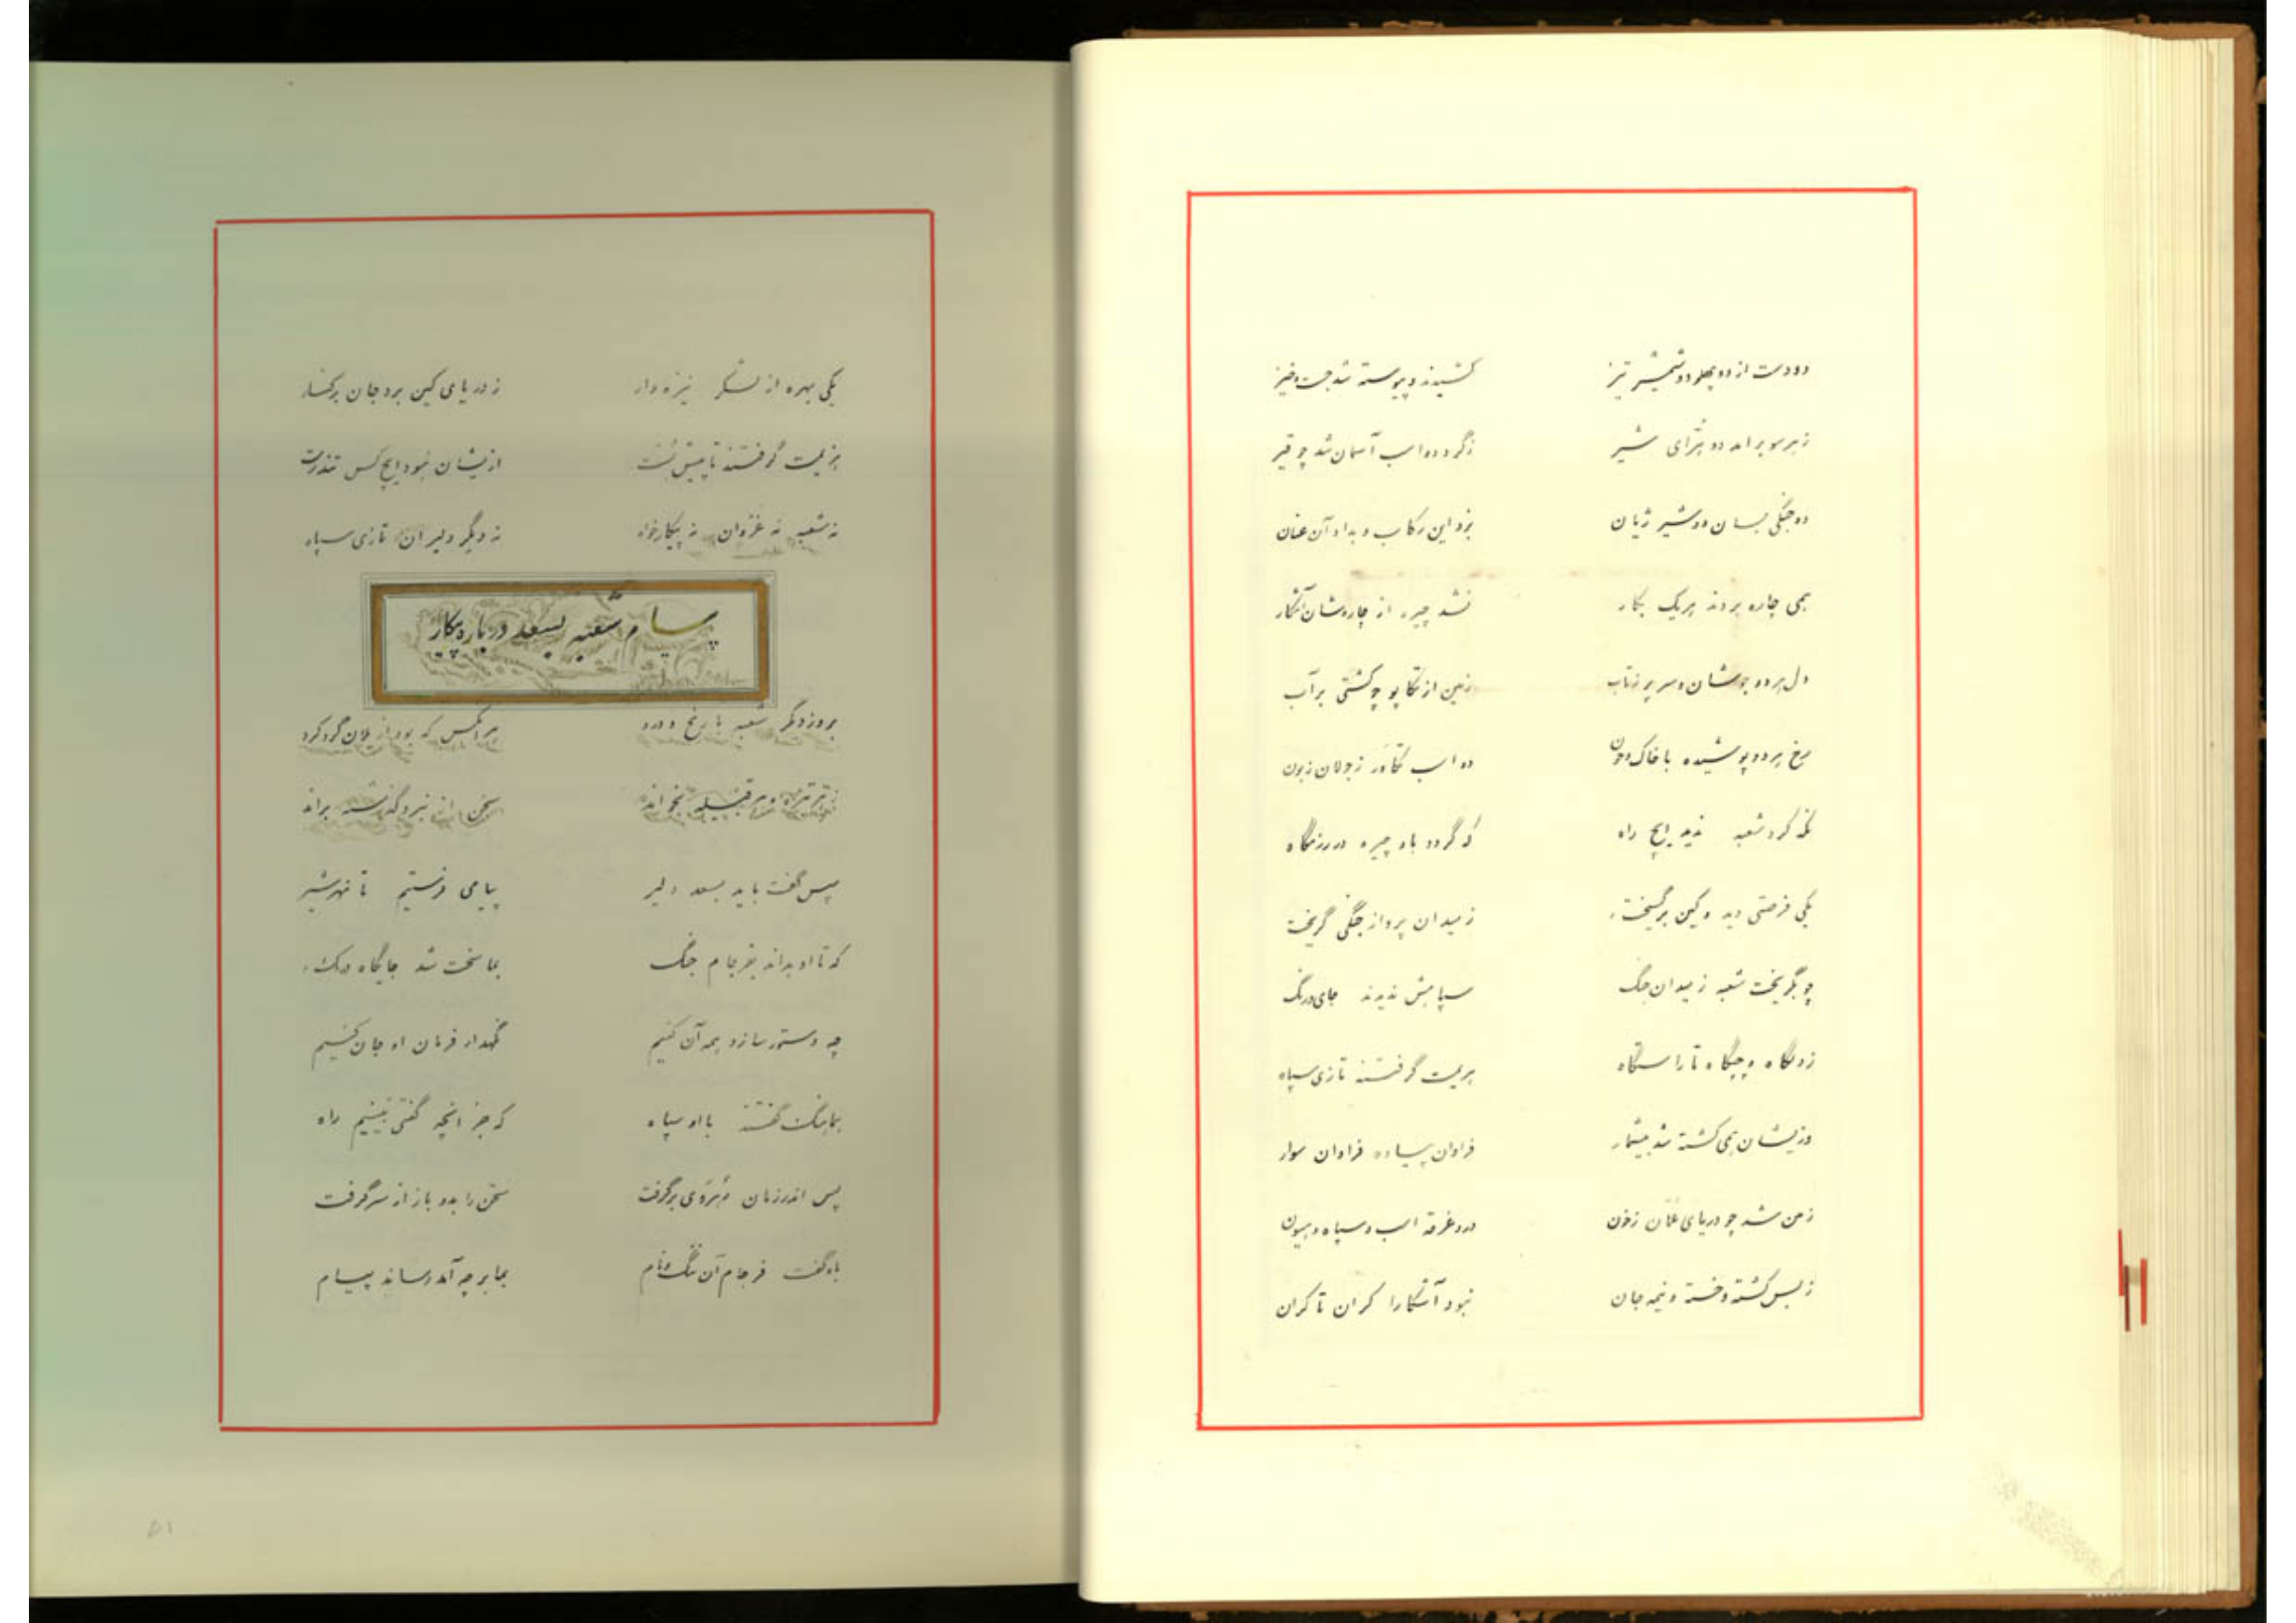 دو دست از دو پهلو دو شمشیر تیز کشیدند و پیوسته شد جست و خیز
ز هر سو براند دو برّای شیر ز گرد دو اسب آسمان شد چو قیر
دو جنگی بسان دو شیر ژیان بزد این رکاب و بداد آن عنان
همی چاره بردند هر یک بکار نشد چیره از چاره‌شان آشکار
دل هر دو جوشان و سر پر ز تاب زمین از تکاپو چو کشتی بر آب
رخ هر دو پوشیده با خاک و خون دو اسب تکاور ز جولان زبون
نگه کرد شعبه ندید ایچ راه که گردد باو چیره در رزمگاه
یکی فرصتی دید و کین برگسیخت ز میدان پرواز جنگی گریخت
چو بگریخت شعبه ز میدان جنگ سپاهش ندیدند جای درنگ
هزیمت گرفتند تازی سپاه
وزیشان همی کشته شد بیشمار فراوان پیاده فراوان سوار
زمین شد چو دریای غلّان ز خون درو غرقه اسب و سپاه و هیون
ز بس کشته و خسته و نیمه جان نبود آشکارا کران تا کران
یکی بهره از لشکر نیزه دار ز دریای کین برد جان برکنار
هزیمت گرفتند تا پیش پشت ازیشان نبود ایچ کس تندرست
نه شعبه نه غزوان نه پیکارخواه نه دیگر دلیران تازی سپاه
پیام شعبه بسعد درباره پیکار
بروز دیگر شعبه با رنج و درد هر آنکس که بود از یلان گرد کرد
ز هر تیره و هر قبیله بخواند سخن از نبرد گذشته براند
سپس گفت باید بسعد دلیر پیامی فرستیم تا نهرشیر
که تا او بداند بفرجام جنگ بما سخت شد جایگاه درنگ
چه دستور سازد همه آن کنیم نگهدار فرمان او جان کنیم
بماهنگ گفتند با او سپاه که جز آنچه گفتی نبینیم راه
پس اندر زمان رهروی برگرفت سخن را بدو باز از سر گرفت
باو گفت فرجام آن ننگ و نام بما بر چه آمد رساند پیام
۵۱